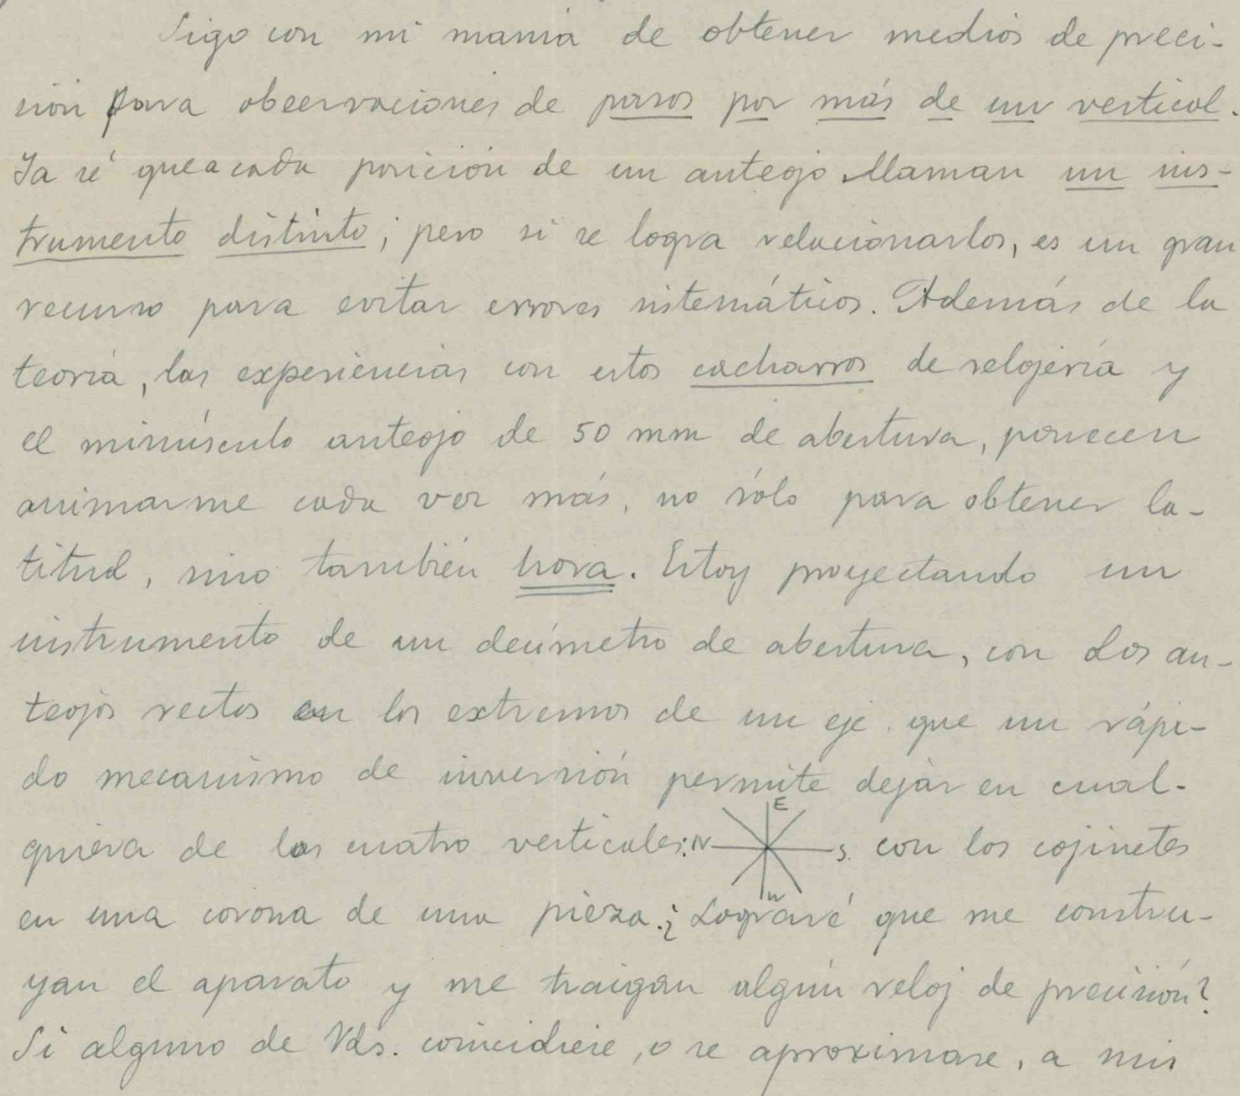 Sigo con mi manía de obtener medios de preci-
sión para observaciones de pasos por más de un vertical.
Ya sé que a cada posición de un anteojo llaman un ins-
trumento distinto; pero si se logra relacionarlos, es un gran
recurso para evitar errores sistemáticos. Además de la
teoría, las experiencias con estos cacharros de relojería y
el minúsculo anteojo de 50 mm de abertura, parecen
animarme cada vez más, no sólo para obtener la-
titud, sino también hora. Estoy proyectando un
instrumento de un decímetro de abertura, con dos an-
teojos rectos en los extremos de un eje que un rápi-
do mecanismo de inversión permite dejar en cual-
quiera de los cuatro verticales: N E S. W con los cojinetes
en una corona de una pieza. ¿Lograré que me constru-
yan el aparato y me traigan algún reloj de precisión?
Si alguno de Vds. coincidiese, o se aproximase, a mis